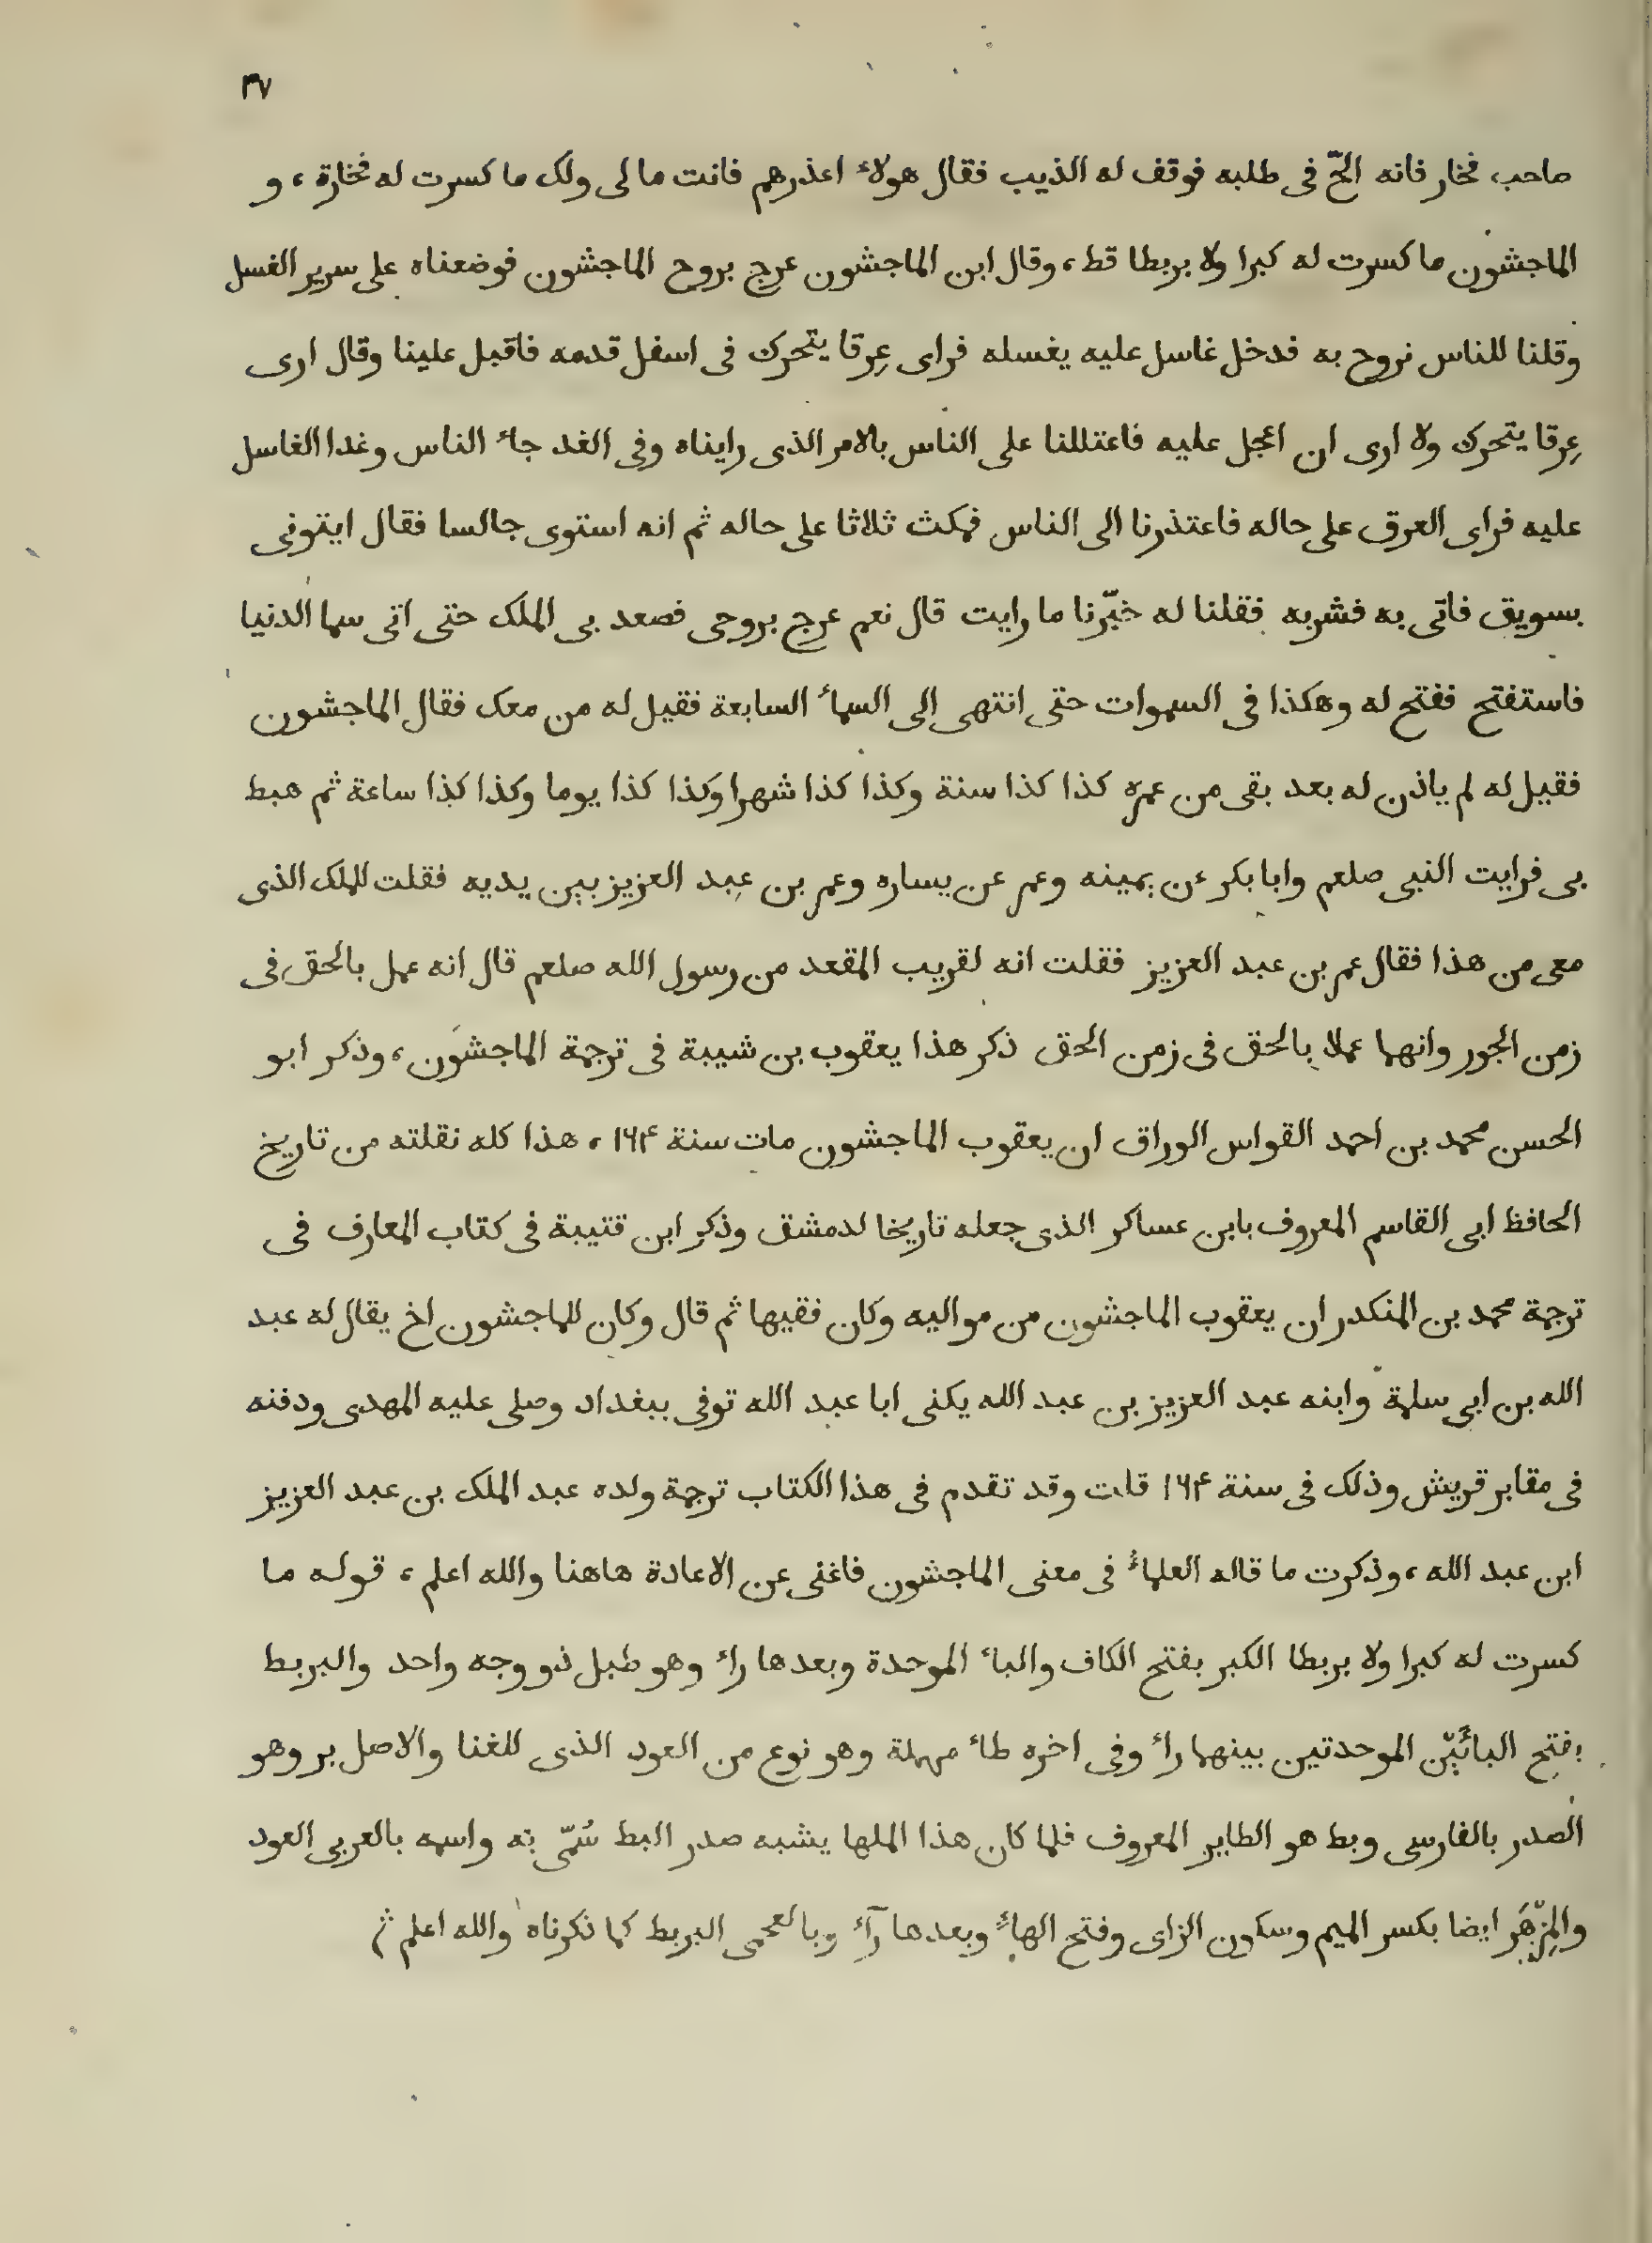 ٣٧
صاحب فخار فانه الحّ فى طلبه فوقف له الذيب فقال هولاء اعذرهم فانت ما لى ولك ما كسرت له فخارة ، و
الماجشون ما كسرت له كبرا ولا بربطا قط ، وقال ابن الماجشون عرج بروح الماجشون فوضعناه على سرير الغسل
وقلنا للناس نروح به فدخل غاسل عليه يغسله فراى عِرقا يتحرك فى اسفل قدمه فاقبل علينا وقال ارى
عِرقا يتحرك ولا ارى ان اعجل عليه فاعتللنا على الناس بالامر الذى رايناه وفى الغد جاء الناس وغدا الغاسل
عليه فراى العرق على حاله فاعتذرنا الى الناس فمكث ثلاثا على حاله ثم انه استوى جالسا فقال ايتونى
بسويق فاتى به فشربه فقلنا له خبّرنا ما رايت قال نعم عرج بروحى فصعد بى الملك حتى اتى سما الدنيا
فاستفتح ففتح له وهكذا فى السموات حتى انتهى الى السماء السابعة فقيل له من معك فقال الماجشون
فقيل له لم ياذن له بعد بقى من عمره كذا كذا سنة وكذا كذا شهرا وكذا كذا يوما وكذا كذا ساعة ثم هبط
بى فرايت النبى صلعم وابا بكر عن يمينه وعمر عن يساره وعمر بن عبد العزيز بين يديه فقلت للملك الذى
معى من هذا فقال عمر بن عبد العزيز فقلت انه لقريب المقعد من رسول الله صلعم قال انه عمل بالحق فى
زمن الجور وانهما عملا بالحق فى زمن الحق ذكر هذا يعقوب بن شيبة فى ترجمة الماجشون ، وذكر ابو
الحسن محمد بن احمد القواس الوراق ان يعقوب الماجشون مات سنة ١٦۴ ، هذا كله نقلته من تاريخ
الحافظ ابى القاسم المعروف بابن عساكر الذى جعله تاريخا لدمشق وذكر ابن قتيبة فى كتاب المعارف فى
ترجمة محمد بن المنكدر ان يعقوب الماجشون من مواليه وكان فقيها ثم قال وكان للماجشون اخ يقال له عبد
الله بن ابى سلمة وابنه عبد العزيز بن عبد الله يكنى ابا عبد الله توفى ببغداد وصلى عليه المهدى ودفنه
فى مقابر قريش وذلك فى سنة ١٦۴ قلت وقد تقدم فى هذا الكتاب ترجمة ولده عبد الملك بن عبد العزيز
ابن عبد الله ، وذكرت ما قاله العلماء فى معنى الماجشون فاغنى عن الاعادة هاهنا والله اعلم ، قوله ما
كسرت له كبرا ولا بربطا الكبر بفتح الكاف والباء الموحدة وبعدها راء وهو طبل ذو وجه واحد والبربط
بفتح البائين الموحدتين بينهما راء وفى اخره طاء مهملة وهو نوع من العود الذى للغنا والاصل بر وهو
الصدر بالفارسى وبط هو الطاير المعروف فلما كان هذا الملها يشبه صدر البط سُمّى به واسمه بالعربى العود
والمِزْهَر ايضا بكسر الميم وسكون الزاى وفتح الهاء وبعدها رآء وبالعجمى البربط كما ذكرناه والله اعلم ثم